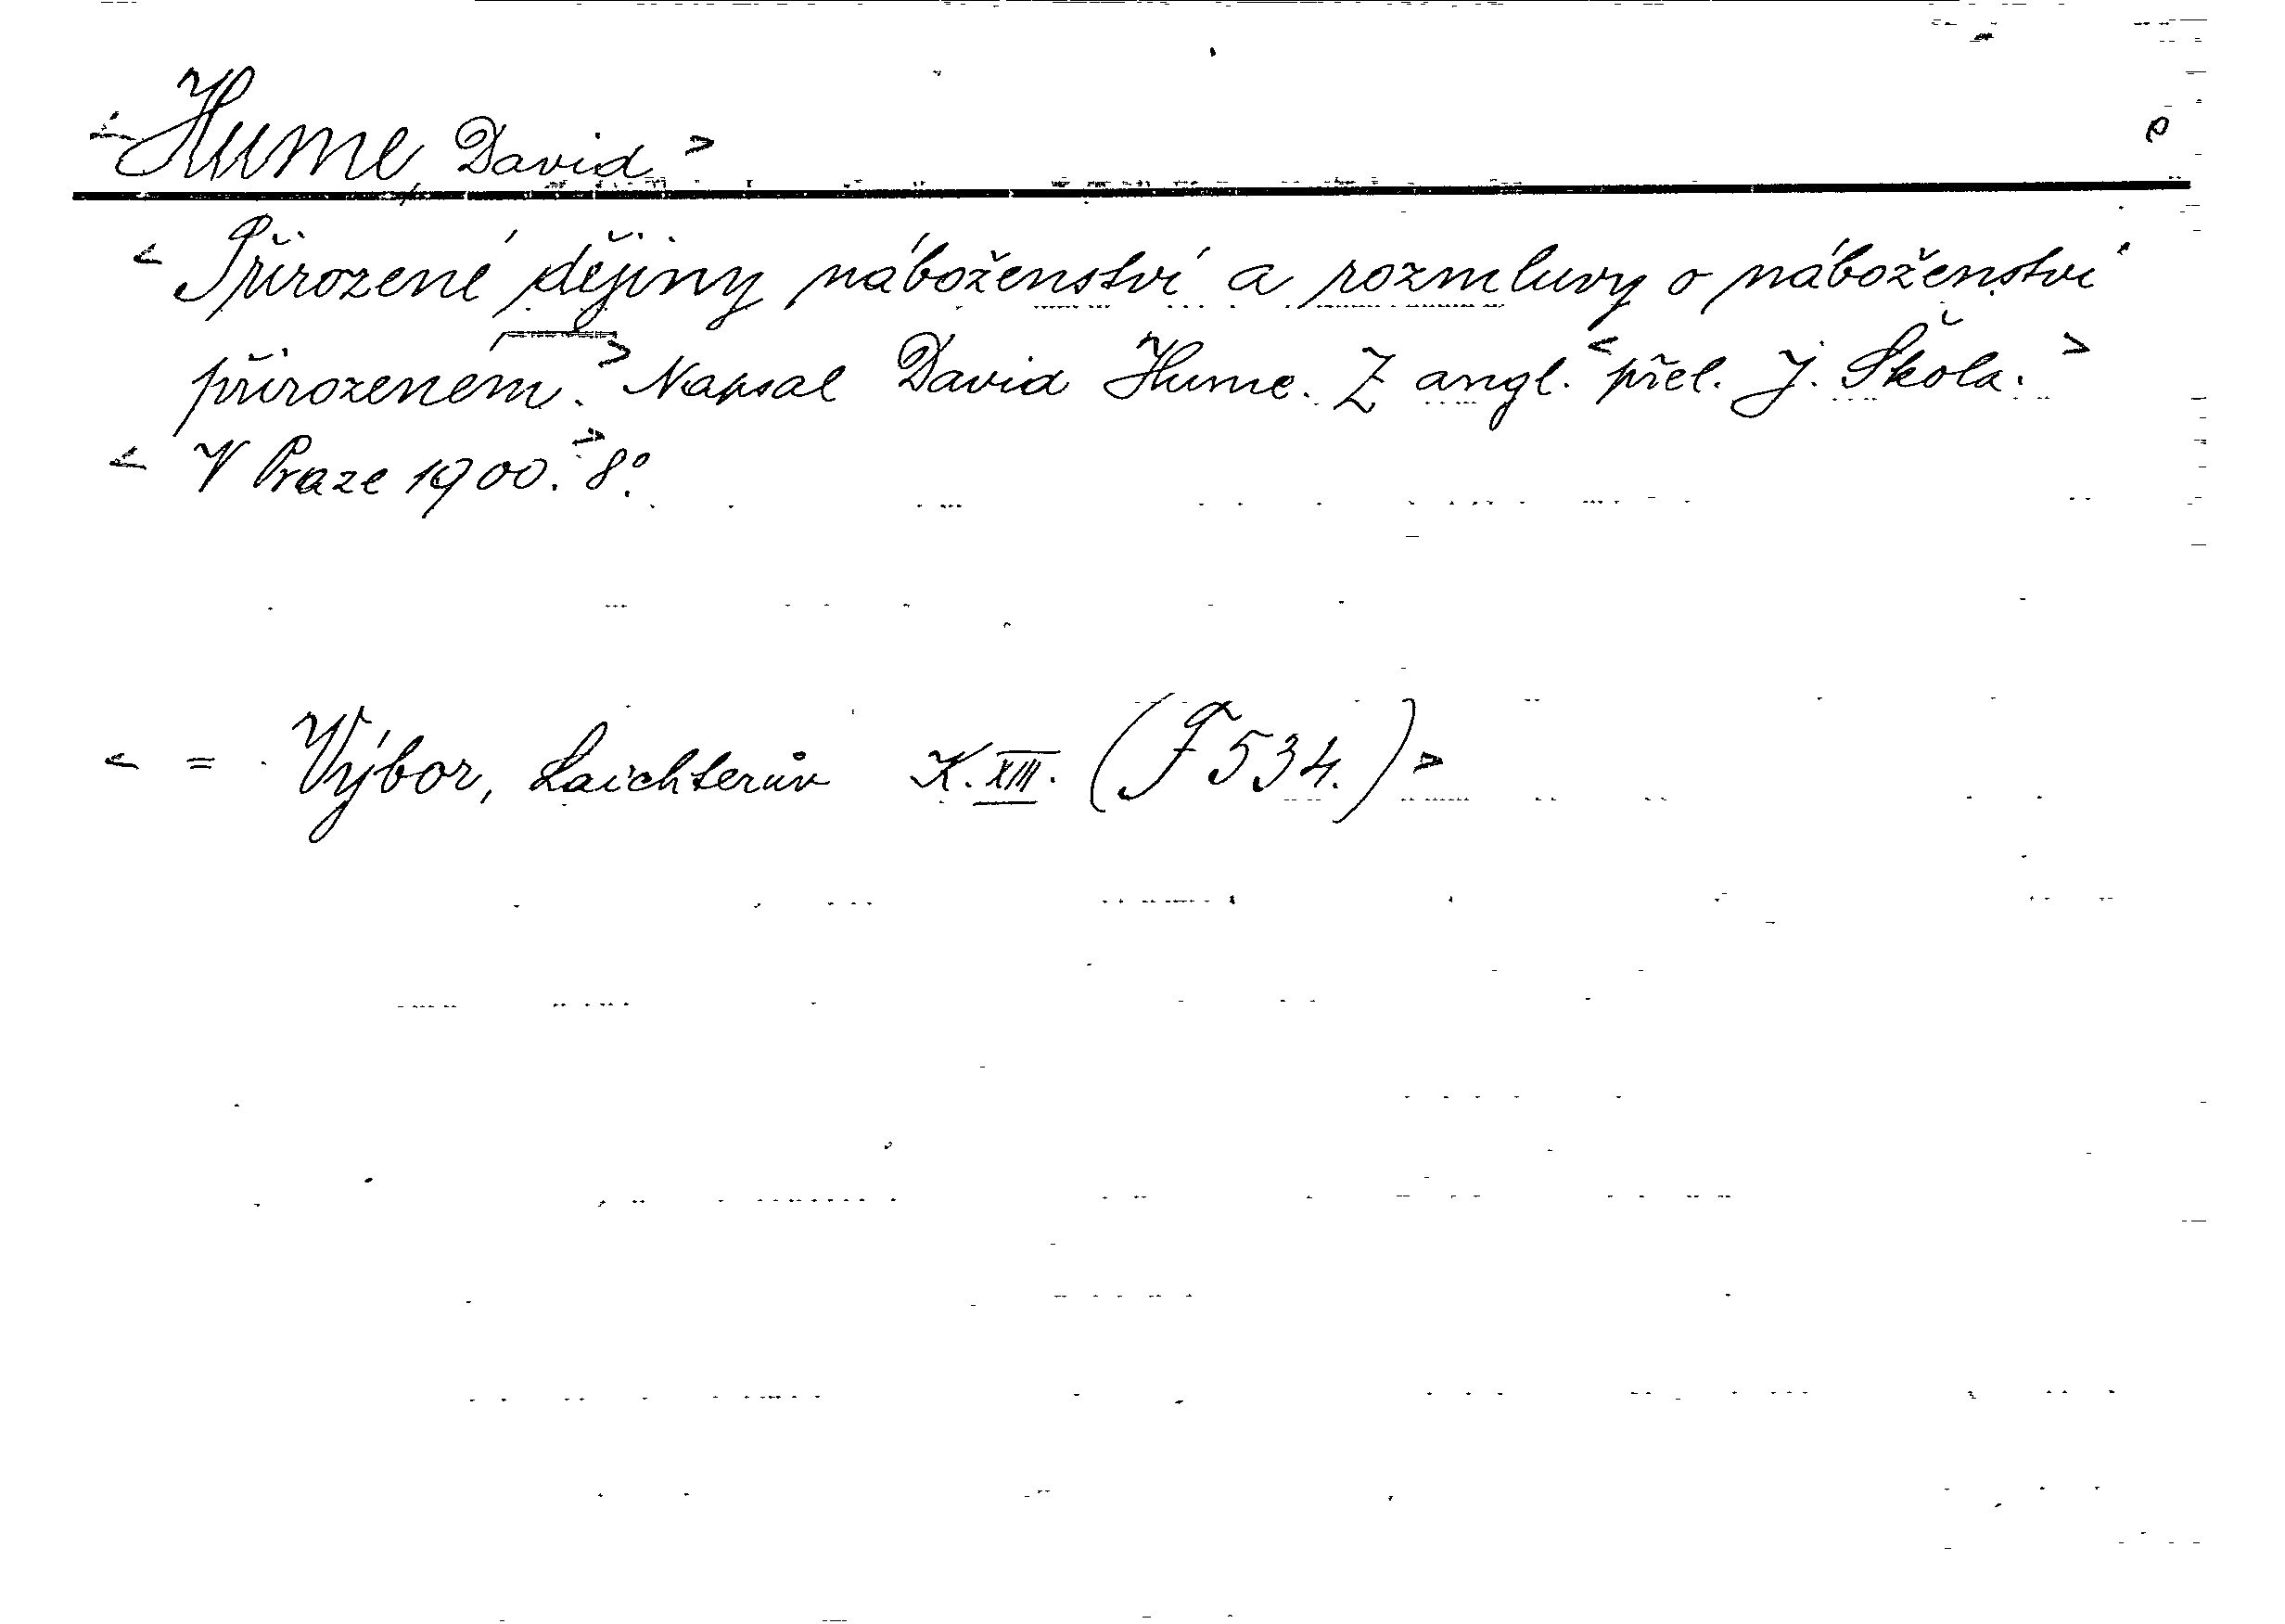 < Hume, David > e
< Přirozené dějiny náboženství a rozmluvy o náboženství
přirozeném. > Napsal David Hume. Z angl. < přel. J. Škola. >
< V Praze 1900. > 8°.
< = Výbor, Laichterův K. XIII. (F 534.) >